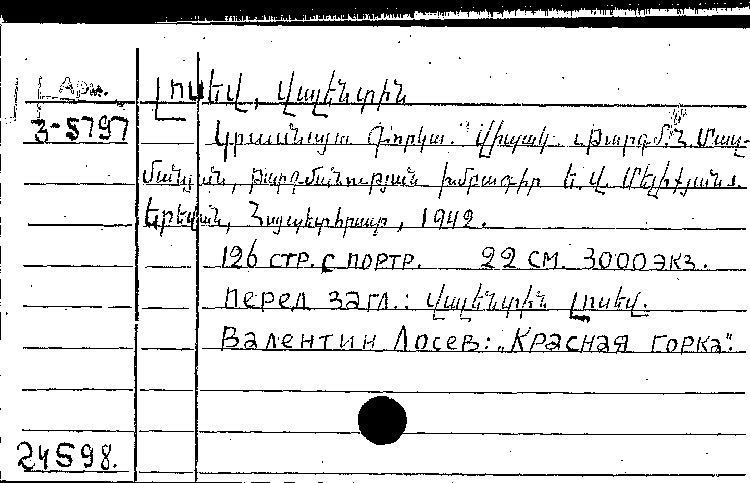 Арм.
Լոսեվ, Վալենտին
3-5797
Կրասնայա Գորկա. Վիպակ. Թարգմ. Ն. Մաղ-
մանյան, թարգմանության խմբագիր Ե. Վ. Մելիքյան:
Երեվան, Հայպետհրատ, 1942.
126 стр. с портр. 22 см. 3000 экз.
Перед загл.: Վալենտին Լոսեվ.
Валентин Лосев: „Красная горка".
24598.